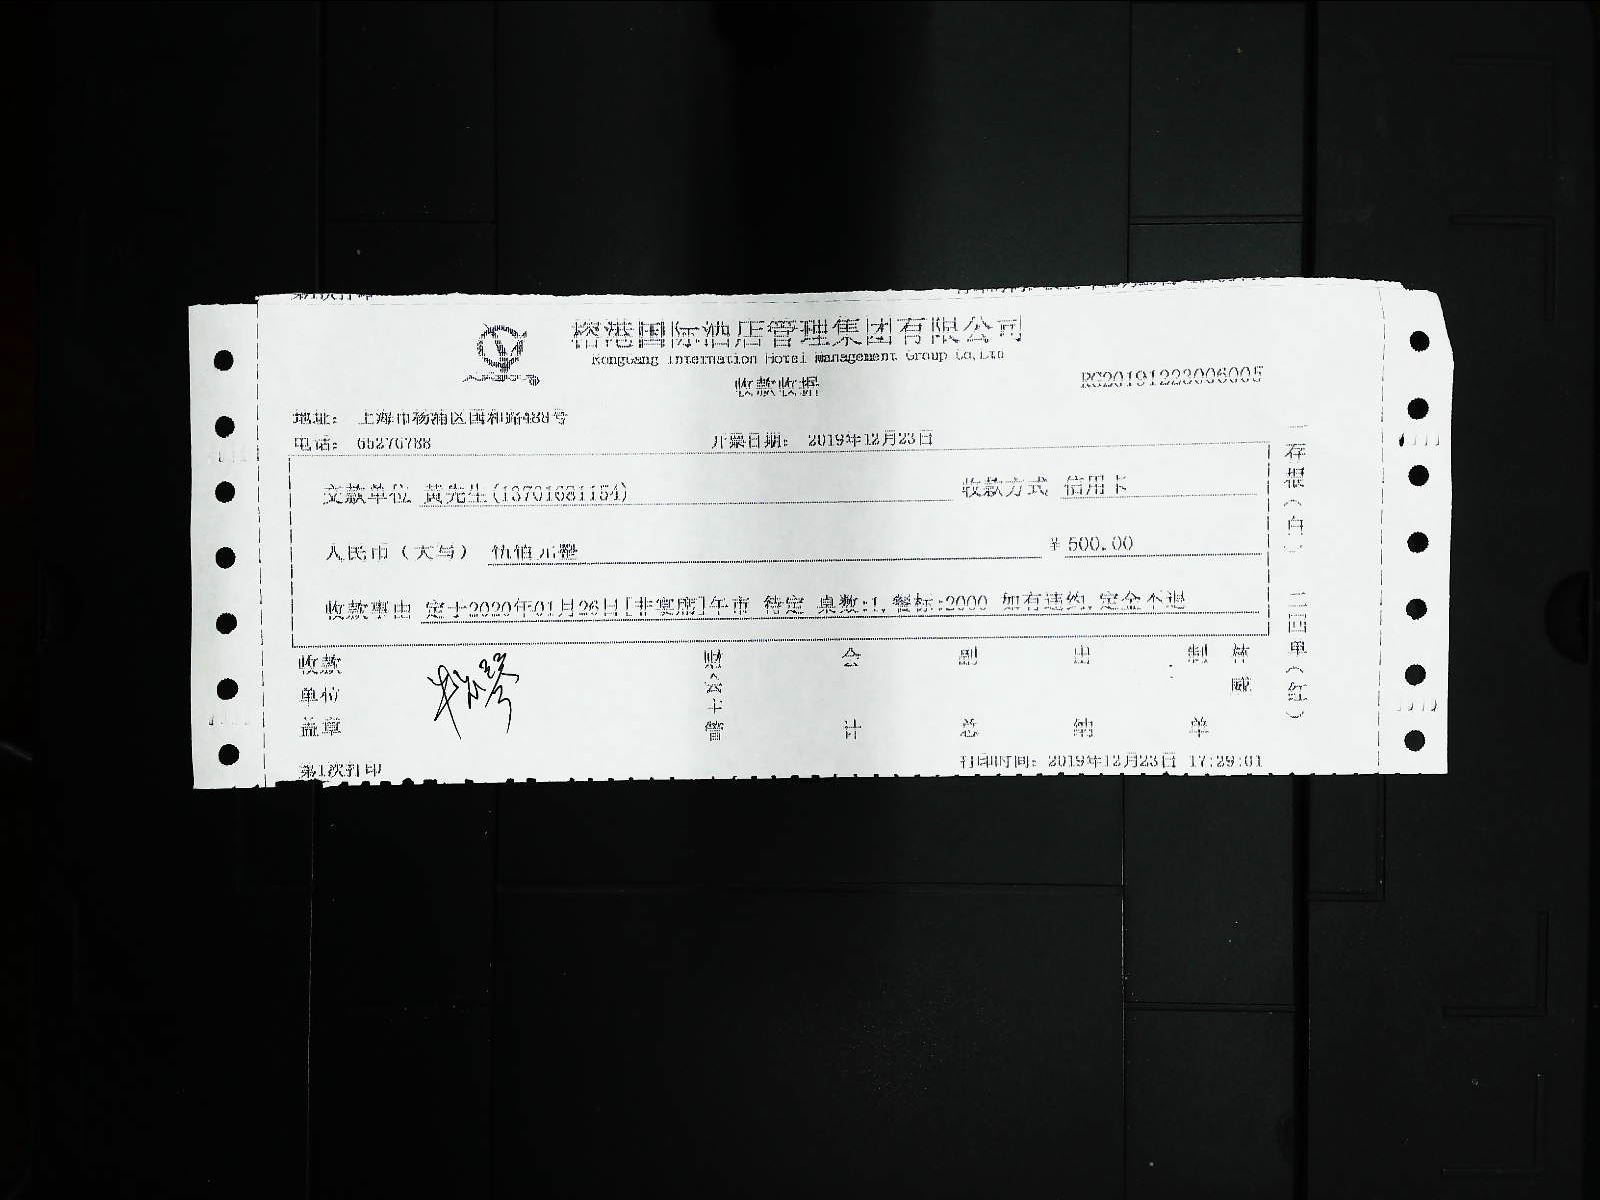 第1次打印
榕港国际酒店管理集团有限公司
RongGang Internation Hotel Management Group Co,Ltd
收款收据
RG20191223006005
地址： 上海市杨浦区国和路488号
电话： 65276788 开票日期： 2019年12月23日
交款单位 黄先生(13701681154) 收款方式 信用卡
人民币（大写） 伍佰元整 ¥500.00
收款事由 定于2020年01月26日[非宴席]午市 待定 桌数:1,餐标:2000 如有违约,定金不退
一存根（白） 二回单（红）
收款单位盖章
财会主管
会计
副总
出纳
制单
第1次打印 打印时间： 2019年12月23日 17:29:01